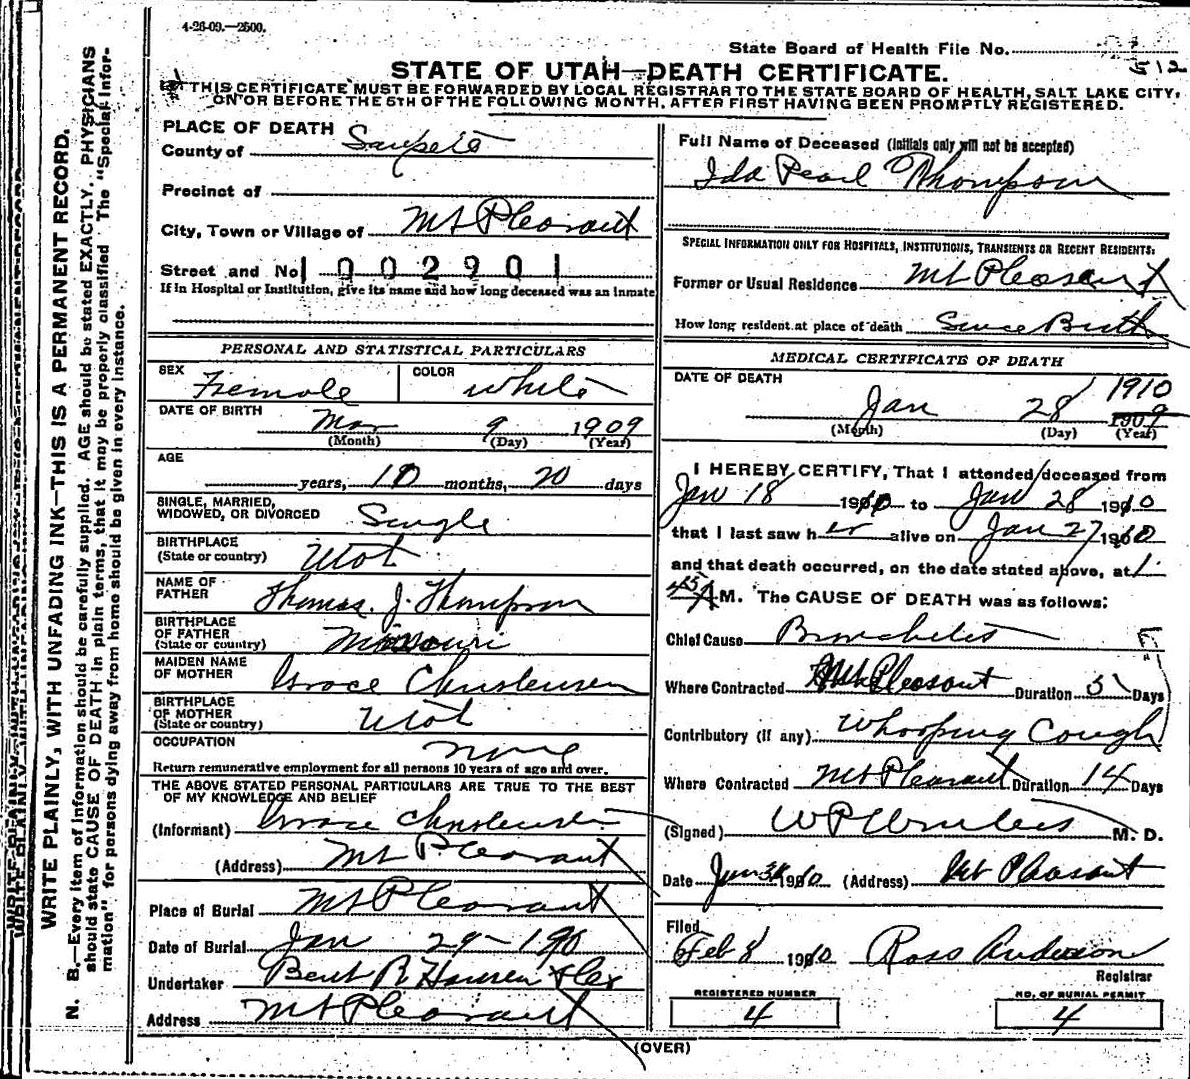 4-26-09.—2500.
State Board of Health File No.
512
STATE OF UTAH—DEATH CERTIFICATE.
THIS CERTIFICATE MUST BE FORWARDED BY LOCAL REGISTRAR TO THE STATE BOARD OF HEALTH, SALT LAKE CITY,
ON OR BEFORE THE 5TH OF THE FOLLOWING MONTH, AFTER FIRST HAVING BEEN PROMPTLY REGISTERED.
WRITE PLAINLY, WITH UNFADING INK—THIS IS A PERMANENT RECORD.
N. B.—Every item of information should be carefully supplied. AGE should be stated EXACTLY. PHYSICIANS
should state CAUSE OF DEATH in plain terms, that it may be properly classified. The "Special Infor-
mation" for persons dying away from home should be given in every instance.
PLACE OF DEATH
County of Sanpete
Precinct of
City, Town or Village of Mt Pleasant
Street and No. 1002901
If in Hospital or Institution, give its name and how long deceased was an inmate
PERSONAL AND STATISTICAL PARTICULARS
SEX Female COLOR White
DATE OF BIRTH Mar 9 1909
(Month) (Day) (Year)
AGE years, 10 months, 20 days
SINGLE, MARRIED,
WIDOWED, OR DIVORCED Single
BIRTHPLACE
(State or country) Utah
NAME OF
FATHER Thomas. J. Thompson
BIRTHPLACE
OF FATHER
(State or country) Missouri
MAIDEN NAME
OF MOTHER Grace Christensen
BIRTHPLACE
OF MOTHER
(State or country) Utah
OCCUPATION none
Return remunerative employment for all persons 10 years of age and over.
THE ABOVE STATED PERSONAL PARTICULARS ARE TRUE TO THE BEST
OF MY KNOWLEDGE AND BELIEF
(Informant) Grace Christensen
(Address) Mt Pleasant
Place of Burial Mt Pleasant
Date of Burial Jan 29- 190
Undertaker Bent R Hansen
Address Mt Pleasant
Full Name of Deceased (Initials only will not be accepted)
Ida Pearl Thompson
SPECIAL INFORMATION ONLY FOR HOSPITALS, INSTITUTIONS, TRANSIENTS OR RECENT RESIDENTS:
Former or Usual Residence Mt Pleasant
How long resident at place of death Since Birth
MEDICAL CERTIFICATE OF DEATH
DATE OF DEATH 1910
Jan 28 1909
(Month) (Day) (Year)
I HEREBY CERTIFY, That I attended deceased from
Jan 18 1910 to Jan 28 1910
that I last saw her alive on Jan 27 1910
and that death occurred, on the date stated above, at 1.
45 A M. The CAUSE OF DEATH was as follows:
Chief Cause Bronchitis
Where Contracted Mt Pleasant Duration 5 Days
Contributory (if any) Whooping Cough
Where Contracted Mt Pleasant Duration 14 Days
(Signed) M. D.
Date Jan 1910 (Address) Mt Pleasant
Filed
Feb 8 1910 Ross Anderson
Registrar
REGISTERED NUMBER
4
NO. OF BURIAL PERMIT
4
(OVER)